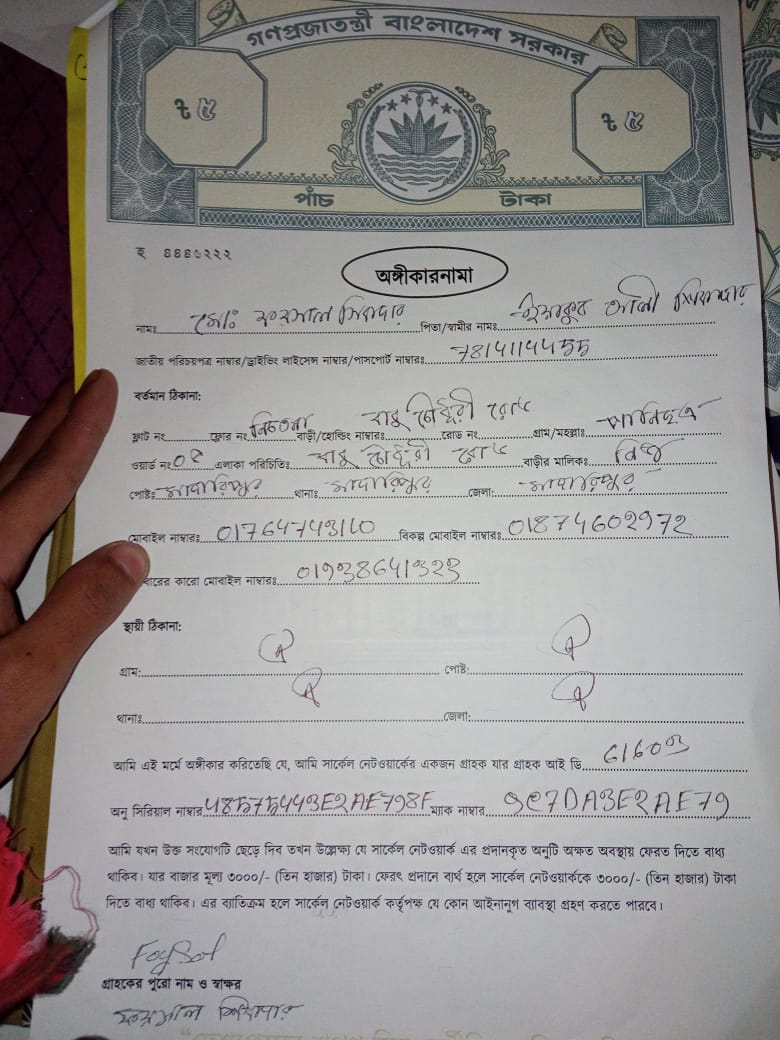 গণপ্রজাতন্ত্রী বাংলাদেশ সরকার
৳ ৫ ৳ ৫
পাঁচ টাকা
অঙ্গীকারনামা
নামঃ মোঃ ফয়সাল সিকদার পিতা/স্বামীর নামঃ আলী সিকদার
জাতীয় পরিচয়পত্র নাম্বার/ড্রাইভিং লাইসেন্স নাম্বার/পাসপোর্ট নাম্বারঃ
বর্তমান ঠিকানা:
ফ্লাট নং ফ্লোর নং নিচতলা বাড়ী/হোল্ডিং নাম্বারঃ চৌধুরী রোড রোড নং গ্রাম/মহল্লাঃ
ওয়ার্ড নং ০২ এলাকা পরিচিতিঃ চৌধুরী রোড বাড়ীর মালিকঃ
পোষ্টঃ মাদারিপুর থানাঃ মাদারিপুর জেলাঃ মাদারিপুর
মোবাইল নাম্বারঃ 01764743110 বিকল্প মোবাইল নাম্বারঃ
বারের কারো মোবাইল নাম্বারঃ
স্থায়ী ঠিকানা:
গ্রাম: পোষ্ট:
থানাঃ জেলা:
আমি এই মর্মে অঙ্গীকার করিতেছি যে, আমি সার্কেল নেটওয়ার্কের একজন গ্রাহক যার গ্রাহক আই ডি
অনু সিরিয়াল নাম্বার 48575443E2AE798F ম্যাক নাম্বার 9C7DA3E2AE79
আমি যখন উক্ত সংযোগটি ছেড়ে দিব তখন উল্লেক্ষ্য যে সার্কেল নেটওয়ার্ক এর প্রদানকৃত অনুটি অক্ষত অবস্থায় ফেরত দিতে বাধ্য
থাকিব। যার বাজার মূল্য ৩০০০/- (তিন হাজার) টাকা। ফেরৎ প্রদানে ব্যর্থ হলে সার্কেল নেটওয়ার্ককে ৩০০০/- (তিন হাজার) টাকা
দিতে বাধ্য থাকিব। এর ব্যাতিক্রম হলে সার্কেল নেটওয়ার্ক কর্তৃপক্ষ যে কোন আইনানুগ ব্যাবস্থা গ্রহণ করতে পারবে।
Foysol
গ্রাহকের পুরো নাম ও স্বাক্ষর
ফয়সাল সিকদার